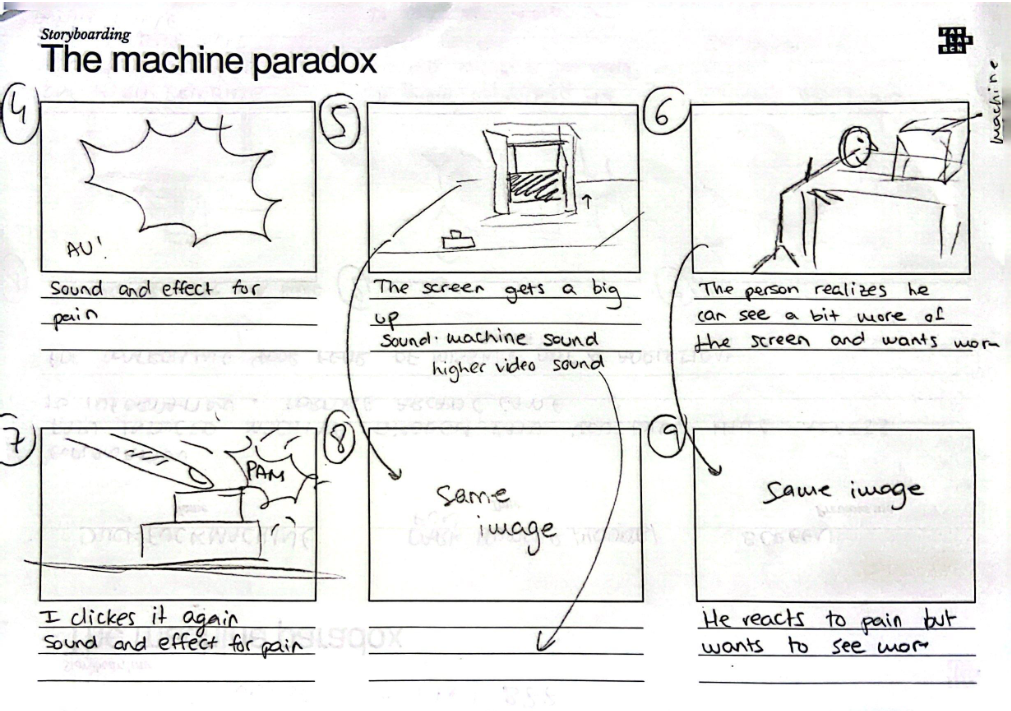 Storyboarding
The machine paradox
FAB
LAB
BCN
machine
4
AU!
Sound and effect for
pain
5
The screen gets a big
up
Sound: machine sound
higher video sound
6
The person realizes he
can see a bit more of
the screen and wants more
7
PAM
I clickes it again
Sound and effect for pain
8
Same
image
9
Same image
He reacts to pain but
wants to see more